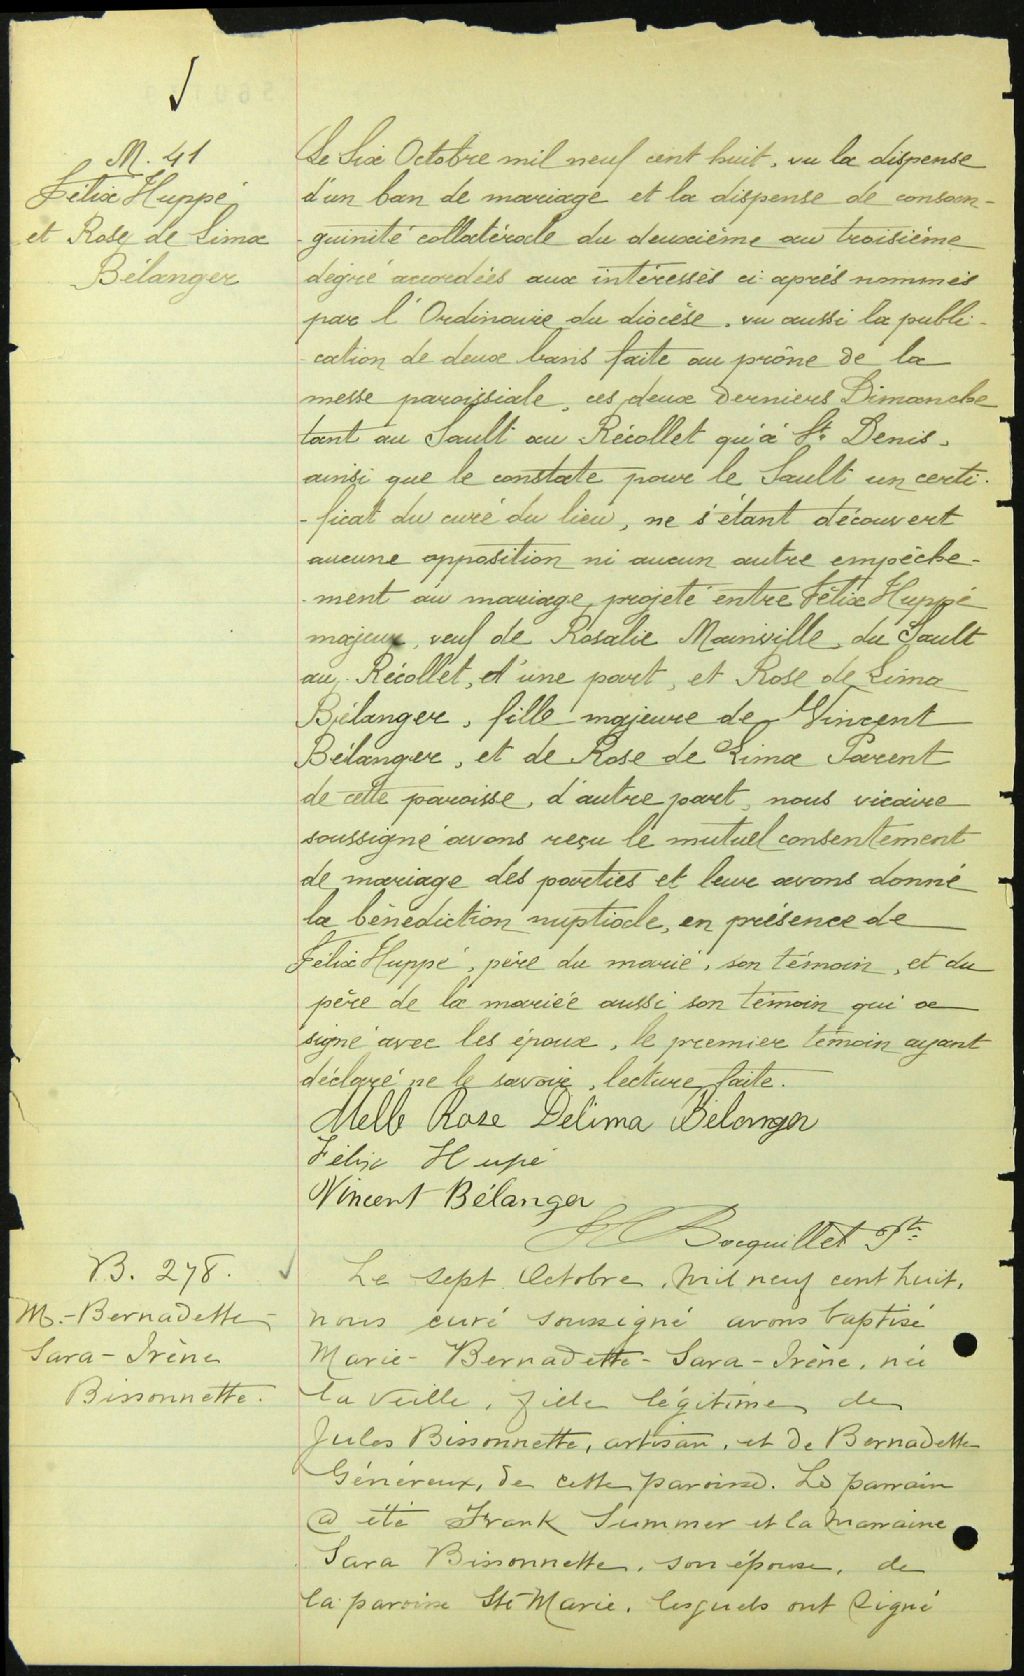 M. 41
Félix Huppé
et Rose de Lima
Bélanger
Le Six Octobre mil neuf cent huit, vu la dispense
d'un ban de mariage et la dispense de consan-
-guinité collatérale du deuxième au troisième
degré accordées aux intéressés ci-après nommés
par l'Ordinaire du diocèse, vu aussi la publi-
-cation de deux bans faite au prône de la
messe paroissiale, ces deux derniers Dimanche
tant au Sault au Récollet qu'à St. Denis,
ainsi que le constate pour le Sault un certi-
-ficat du curé du lieu, ne s'étant découvert
aucune opposition ni aucun autre empêche-
-ment au mariage projeté entre Félix Huppé
majeur, veuf de Rosalie Mainville, du Sault
au Récollet, d'une part, et Rose de Lima
Bélanger, fille majeure de Vincent
Bélanger, et de Rose de Lima Parent
de cette paroisse, d'autre part, nous vicaire
soussigné avons reçu le mutuel consentement
de mariage des parties et leur avons donné
la bénédiction nuptiale, en présence de
Félix Huppé, père du marié, son témoin, et du
père de la mariée aussi son témoin qui a
signé avec les époux, le premier témoin ayant
déclaré ne le savoir, lecture faite.
Melle Rose Delima Bélanger
Félix Hupé
Vincent Bélanger
Bocquillet Ptr
B. 278.
M.-Bernadette-
Sara-Irène
Bissonnette.
Le sept Octobre, mil neuf cent huit,
nous curé soussigné avons baptisé
Marie-Bernadette-Sara-Irène, née
la veille, fille légitime de
Jules Bissonnette, artisan, et de Bernadette
Généreux, de cette paroisse. Le parrain
a été Frank Summer et la marraine
Sara Bissonnette, son épouse, de
la paroisse Ste Marie, lesquels ont signé